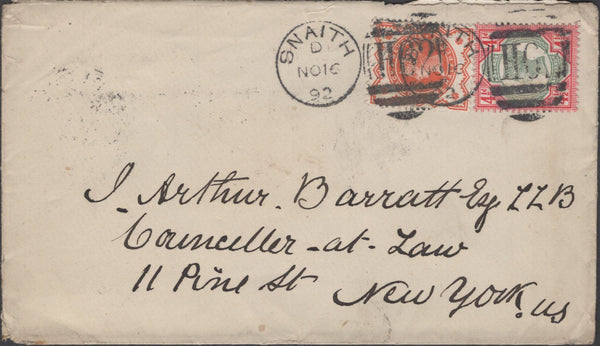 SNAITH
D
NO16
92
J. Arthur. Barratt Esq LLB
Counceller-at-Law
11 Pine St New York. US